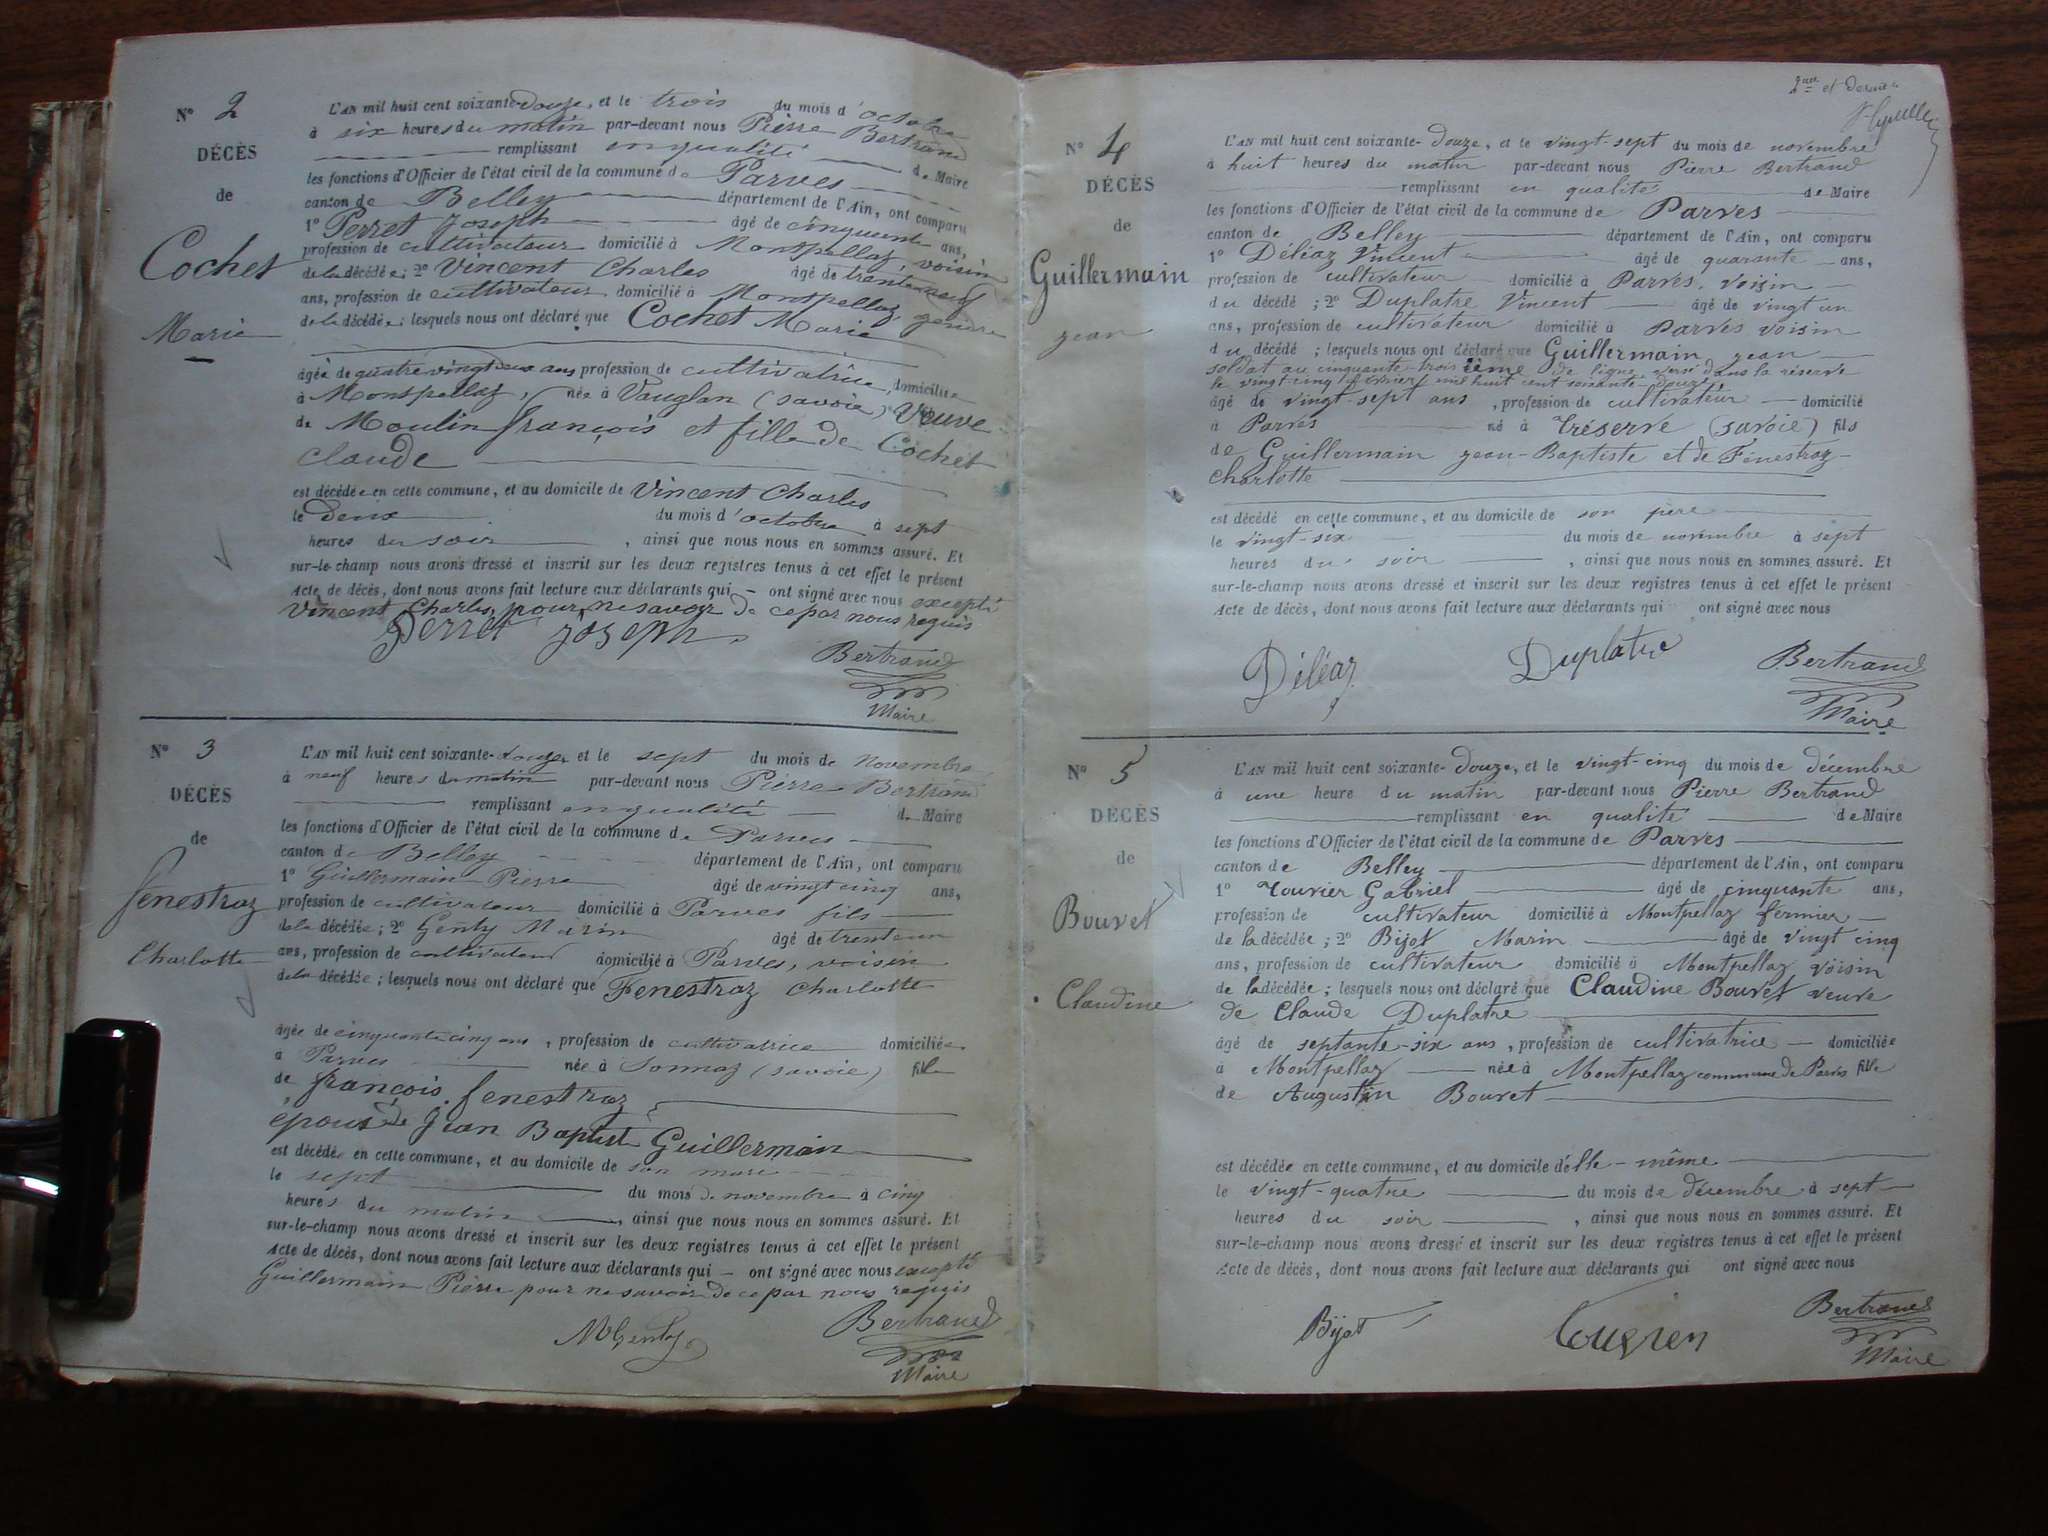 N° 2
DÉCÈS
de
Cochet
Marie
L'AN mil huit cent soixante-douze, et le trois du mois d'octobre
à six heures du matin par-devant nous Pierre Bertrand
remplissant en qualité de Maire
les fonctions d'Officier de l'état civil de la commune de Parves
canton de Belley département de l'Ain, ont comparu
1° Perret Joseph âgé de cinquante ans,
profession de cultivateur domicilié à Montpellaz, voisin
de la décédée; 2° Vincent Charles âgé de trente neuf
ans, profession de cultivateur domicilié à Montpellaz, gendre
de la décédée; lesquels nous ont déclaré que Cochet Marie
âgée de quatre vingt deux ans profession de cultivatrice, domiciliée
à Montpellaz, née à Vauglan (savoie) Veuve
de Moulin françois et fille de Cochet
claude
est décédée en cette commune, et au domicile de Vincent Charles
le deux du mois d'octobre à sept
heures du soir, ainsi que nous nous en sommes assuré. Et
sur-le-champ nous avons dressé et inscrit sur les deux registres tenus à cet effet le présent
Acte de décès, dont nous avons fait lecture aux déclarants qui ont signé avec nous excepté
Vincent Charles, pour ne savoir de ce par nous requis
Perret joseph
Bertrand
Maire
N° 3
DÉCÈS
de
fenestraz
Charlotte
L'AN mil huit cent soixante-douze, et le sept du mois de novembre
à neuf heures du matin par-devant nous Pierre Bertrand
remplissant en qualité de Maire
les fonctions d'Officier de l'état civil de la commune de Parves
canton de Belley département de l'Ain, ont comparu
1° Guillermain Pierre âgé de vingt cinq ans,
profession de cultivateur domicilié à Parves fils
de la décédée; 2° Genty Marin âgé de trente un
ans, profession de cultivateur domicilié à Parves, voisin
de la décédée; lesquels nous ont déclaré que Fenestraz Charlotte
âgée de cinquante cinq ans, profession de cultivatrice domiciliée
à Parves née à Sonnaz (savoie) fille
de françois fenestraz
épouse de Jean Baptiste Guillermain
est décédée en cette commune, et au domicile de son mari
le sept du mois de novembre à cinq
heures du matin, ainsi que nous nous en sommes assuré. Et
sur-le-champ nous avons dressé et inscrit sur les deux registres tenus à cet effet le présent
Acte de décès, dont nous avons fait lecture aux déclarants qui ont signé avec nous excepté
Guillermain Pierre pour ne savoir de ce par nous requis
MGenty
Bertrand
Maire
2me et dernier
N° 4
DÉCÈS
de
Guillermain
jean
L'AN mil huit cent soixante-douze, et le vingt-sept du mois de novembre
à huit heures du matin par-devant nous Pierre Bertrand
remplissant en qualité de Maire
les fonctions d'Officier de l'état civil de la commune de Parves
canton de Belley département de l'Ain, ont comparu
1° Déléaz Vincent âgé de quarante ans,
profession de cultivateur domicilié à Parves, voisin
du décédé; 2° Duplatre Vincent âgé de vingt un
ans, profession de cultivateur domicilié à Parves voisin
du décédé; lesquels nous ont déclaré que Guillermain jean
soldat au cinquante-troisième de ligne versé dans la réserve
le vingt-cinq février mil huit cent soixante-douze
âgé de vingt-sept ans, profession de cultivateur domicilié
à Parves né à Tréserve (savoie) fils
de Guillermain jean-Baptiste et de Fenestraz
Charlotte
est décédé en cette commune, et au domicile de son père
le vingt-six du mois de novembre à sept
heures du soir, ainsi que nous nous en sommes assuré. Et
sur-le-champ nous avons dressé et inscrit sur les deux registres tenus à cet effet le présent
Acte de décès, dont nous avons fait lecture aux déclarants qui ont signé avec nous
Déléaz
Duplatre
Bertrand
Maire
N° 5
DÉCÈS
de
Bouvet
Claudine
L'AN mil huit cent soixante-douze, et le vingt-cinq du mois de décembre
à une heure du matin par-devant nous Pierre Bertrand
remplissant en qualité de Maire
les fonctions d'Officier de l'état civil de la commune de Parves
canton de Belley département de l'Ain, ont comparu
1° Touvier Gabriel âgé de cinquante ans,
profession de cultivateur domicilié à Montpellaz fermier
de la décédée; 2° Bijot Marin âgé de vingt cinq
ans, profession de cultivateur domicilié à Montpellaz voisin
de la décédée; lesquels nous ont déclaré que Claudine Bouvet veuve
de Claude Duplatre
âgé de septante-six ans, profession de cultivatrice domiciliée
à Montpellaz née à Montpellaz commune de Parves fille
de Augustin Bouvet
est décédée en cette commune, et au domicile d'elle-même
le vingt-quatre du mois de décembre à sept
heures du soir, ainsi que nous nous en sommes assuré. Et
sur-le-champ nous avons dressé et inscrit sur les deux registres tenus à cet effet le présent
Acte de décès, dont nous avons fait lecture aux déclarants qui ont signé avec nous
Bijot
Bertrand
Maire